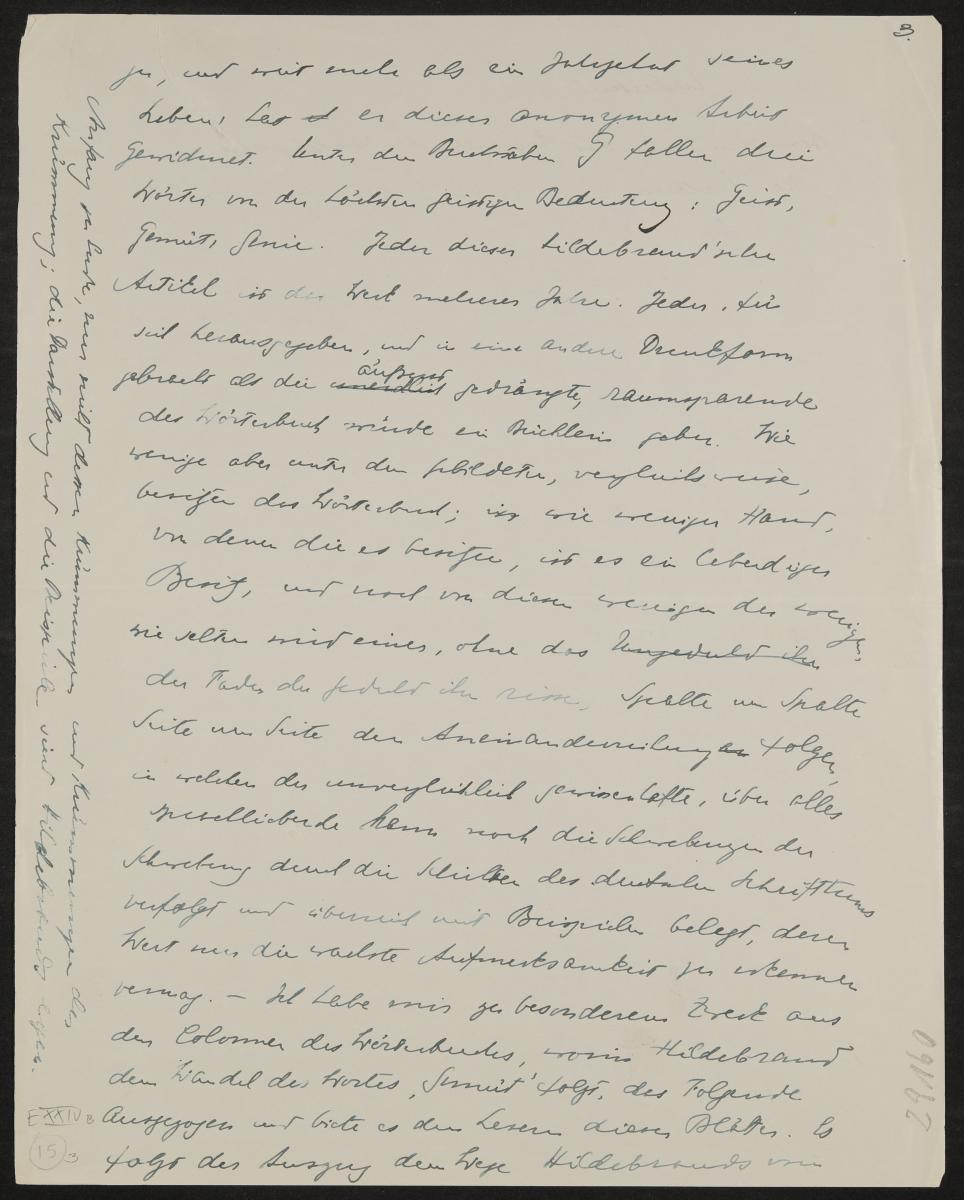 3.
zu, und weit mehr als ein Jahrzehnt seines
Lebens hat er dieser anonymen Arbeit
gewidmet. Unter den Buchstaben G fallen drei
Wörter von der höchsten geistigen Bedeutung: Geist,
Gemüt, Genie. Jeder dieser Hildebrand'schen
Artikel ist das Werk mehrerer Jahre. Jeder, für
sich herausgegeben, und in eine andere Druckform
gebracht als die äußerst gedrängte, raumsparende
des Wörterbuchs würde ein Büchlein geben. Wie
wenige aber unter den Gebildeten, vergleichsweise,
besitzen das Wörterbuch; in wie weniger Hand,
von denen die es besitzen, ist es ein lebendiger
Besitz, und noch von diesen wenigen der wenigen,
wie selten wird eines, ohne das Ungeduld ihm
der Faden der Geduld ihm risse, Spalte um Spalte
Seite um Seite den Aneinanderreihungen folgen,
in welchen der unvergleichlich gewissenhafte, über alles
sprachliebende Mann noch die Schwebungen der
Schwebung durch die Schichten des deutschen Schrifttums
verfolgt und überreich mit Beispielen belegt, deren
Wert nur die wachste Aufmerksamkeit zu erkennen
vermag. – Ich habe mir zu besonderem Zweck aus
den Colonnen des Wörterbuches, worin Hildebrand
dem Wandel des Wortes „Gemüt" folgt, das Folgende
ausgezogen und biete es den Lesern dieser Blätter. Es
folgt der Auszug dem Wege Hildebrands vom
Anfang zu Ende, nur nicht dessen Krümmungen und Krümmungen der
Krümmung; die Darstellung und die Beispiele sind Hildebrands eigen.
E XXIV B
15 3
29160